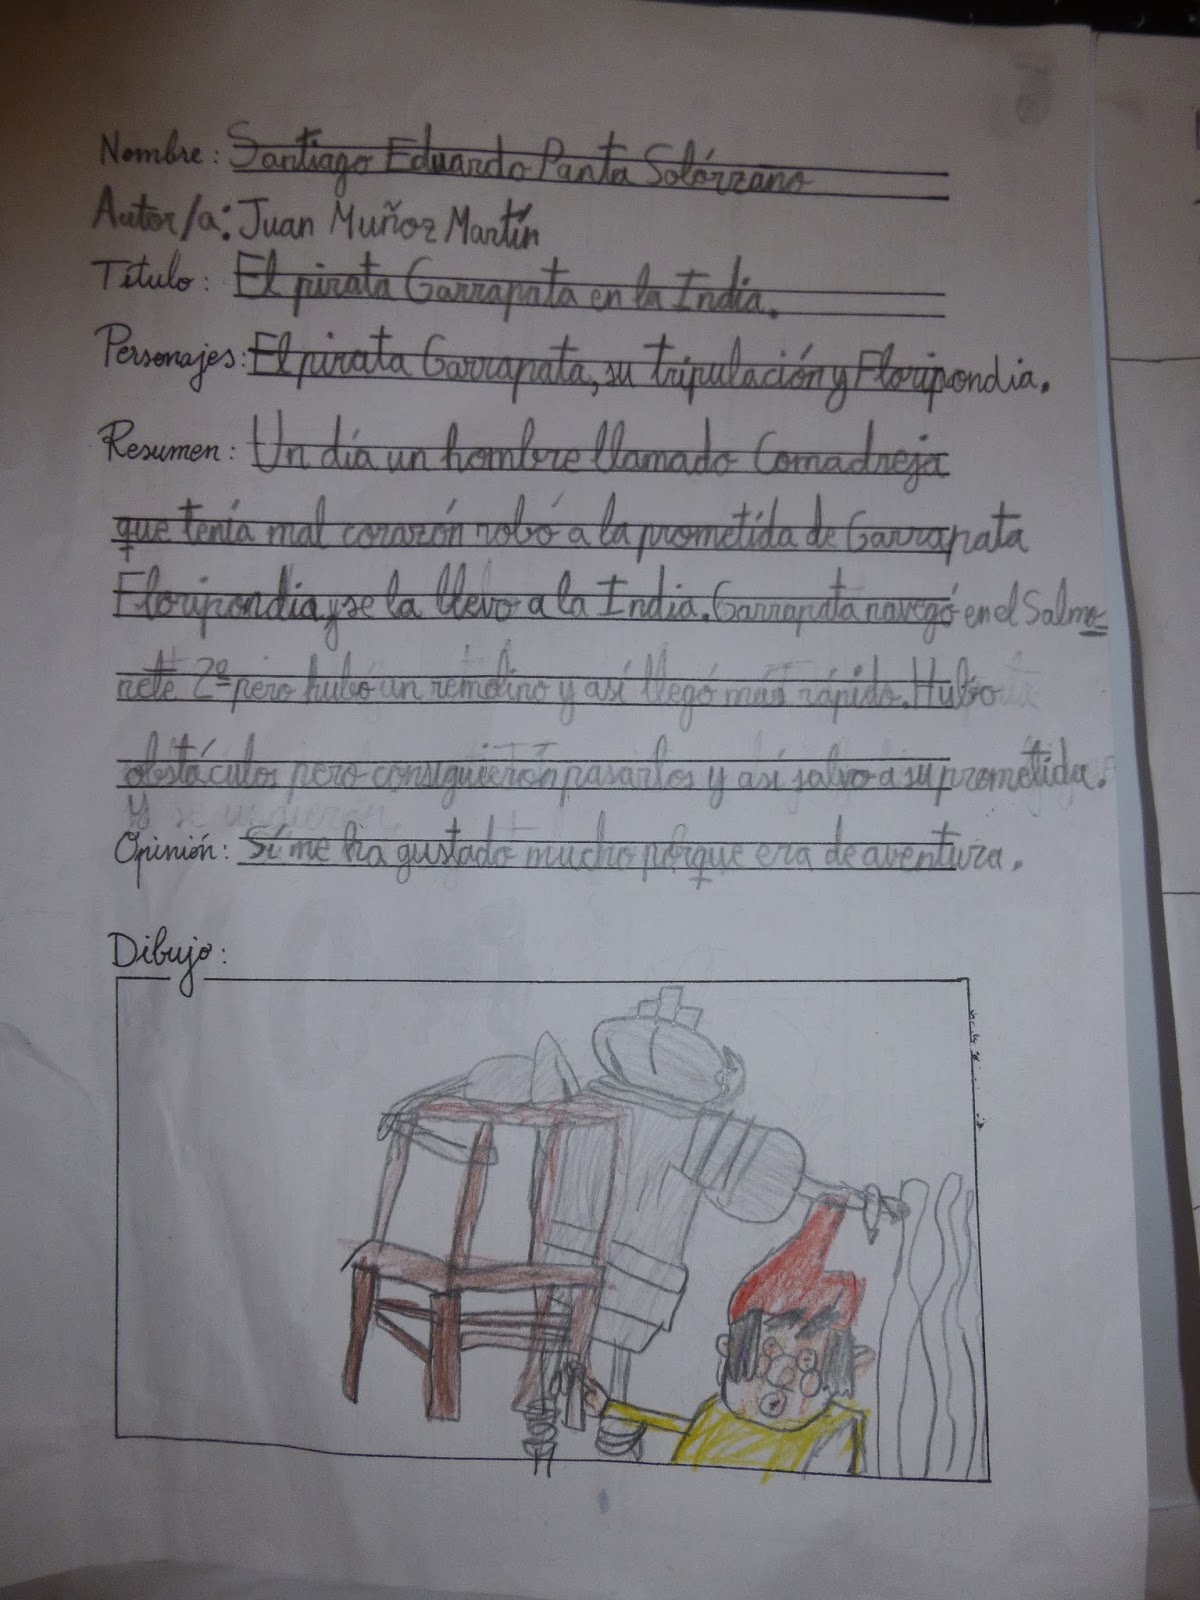 Nombre: Santiago Eduardo Panta Solórzano
Autor/a: Juan Muñoz Martín
Título: El pirata Garrapata en la India.
Personajes: El pirata Garrapata, su tripulación y Floripondia.
Resumen: Un día un hombre llamado Comadreja
que tenía mal corazón robó a la prometida de Garrapata
Floripondia y se la llevo a la India. Garrapata navegó en el Salmo
nete 2º pero hubo un remolino y así llegó más rápido. Hubo
obstáculos pero consiguieron pasarlos y así salvo a su prometida.
y se
Opinión: Sí me ha gustado mucho porque era de aventura.
Dibujo: